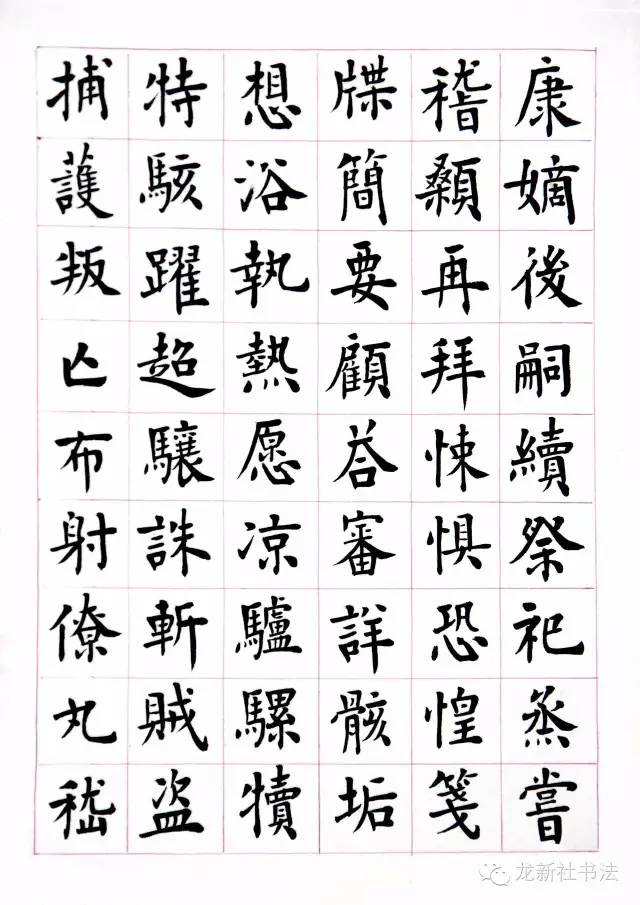 康嫡後嗣續祭祀烝嘗
稽顙再拜悚惧恐惶箋
牒簡要顧荅審詳骸垢
想浴執熱愿凉驢騾犢
特駭躍超驤誅斬賊盜
捕護叛亡布射僚丸嵇
龙新社书法